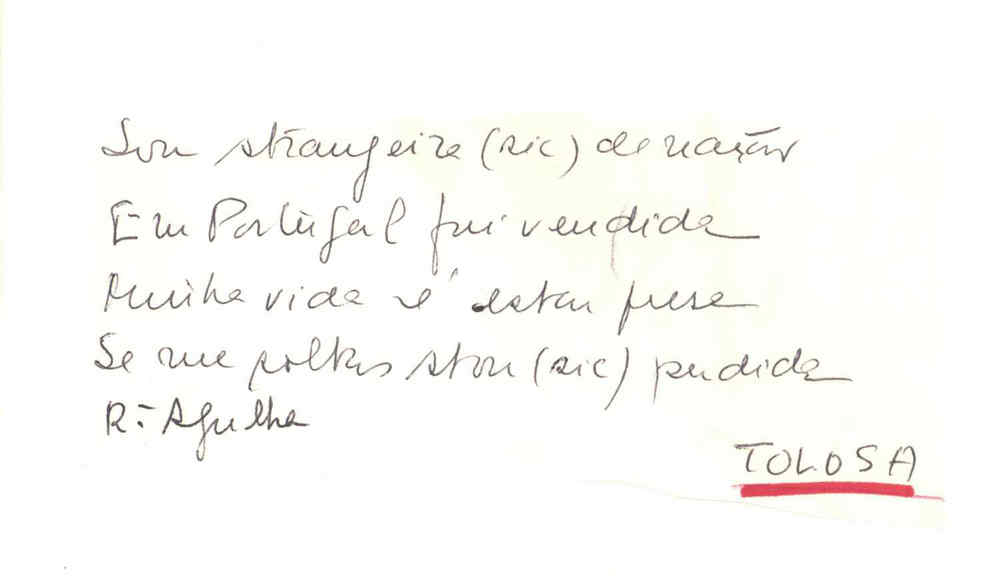 Sou strangeira (sic) de nação
Em Portugal fui vendida
Minha vida é estar presa
Se me soltas stou (sic) perdida
R: Agulha
TOLOSA